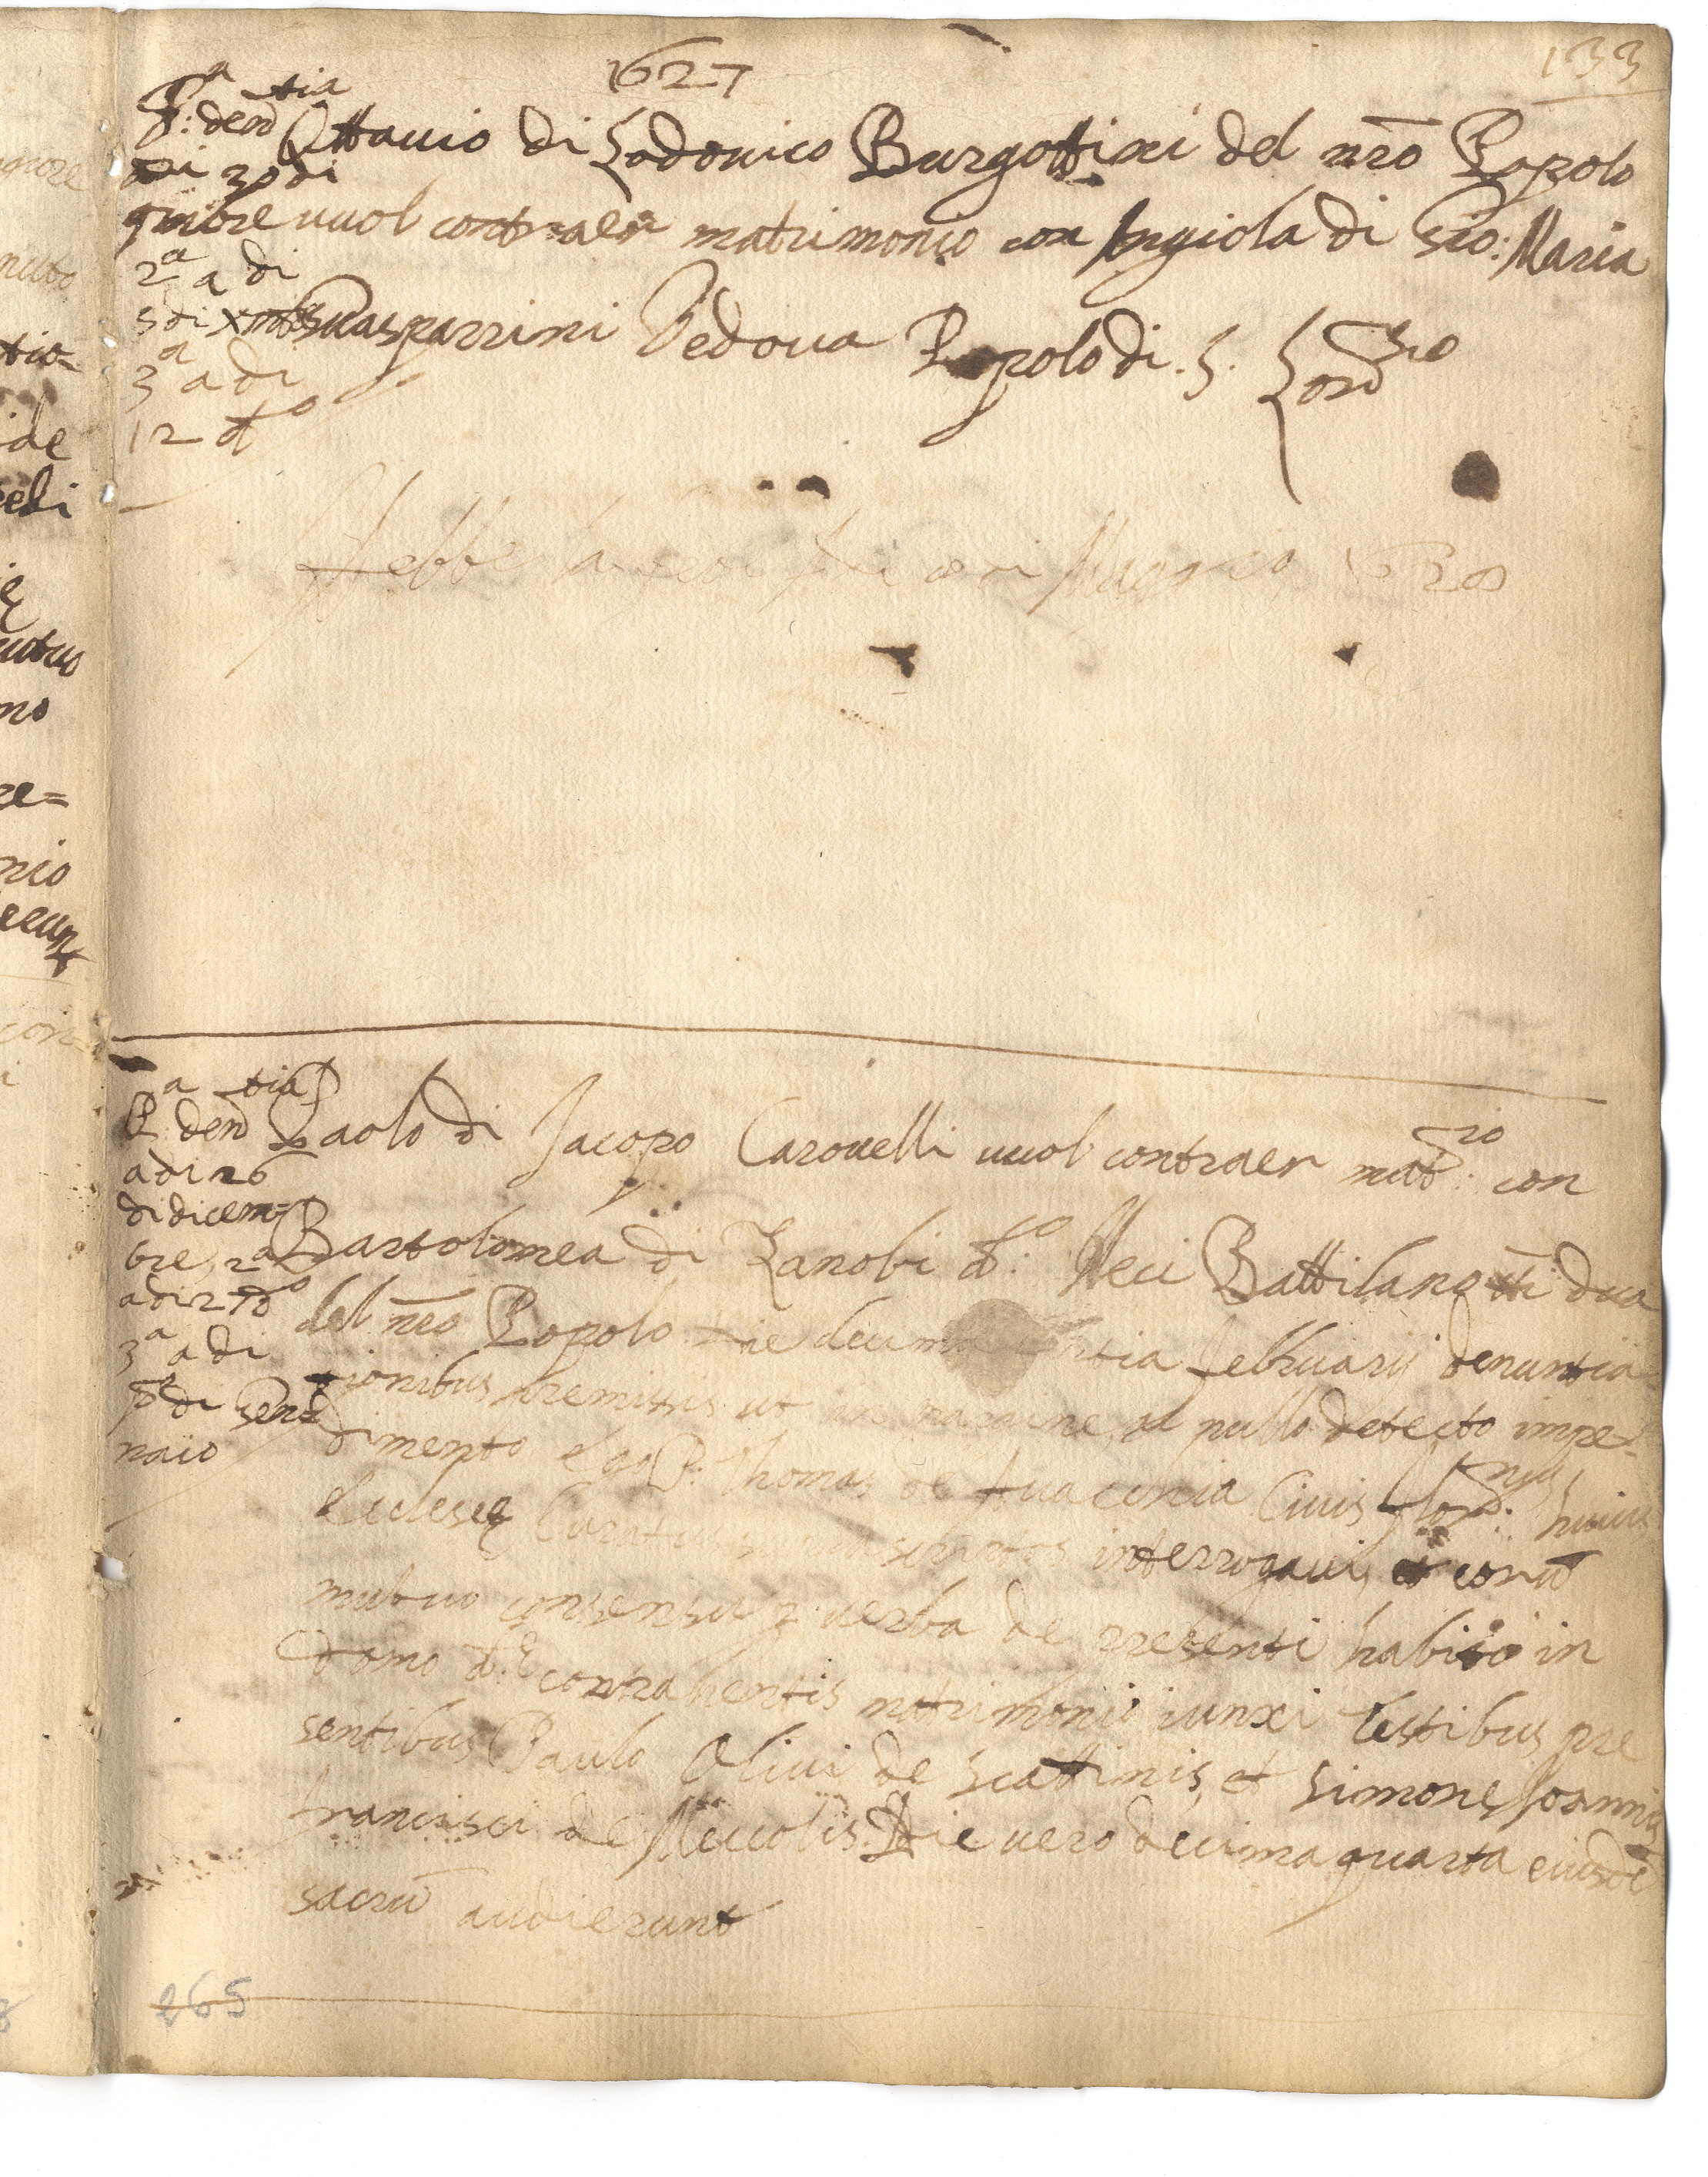 1627
133
P.a den.tia
adi 30 di
9mbre
2a a di
5 di xmbre
3a a di
12 d.o
Ottauio di Lodouico Burgottini del nro Popolo
uuol contraer matrimonio con Angiola di Gio: Maria
Guasparrini Vedoua Popolo di S. Lor.zo
Hebbe la fede
1628
P.a den.tia
adi 26
di dicem=
bre, 2a
adi 27 d.o
3a a di
p.o di Gen=
naio
Paolo di Jacopo Carouelli uuol contraer mat.rio con
Bartolomea di Zanobi d.o Meci Battilano tti dua
del nro Popolo Die decima tertia februarij denuntia
tionibus premissis ut in margine, al nullo detecto impe=
dimento ego P. Thomas de ciuis flor. huius
Ecclesię Curatus interrogaui, et eorū
mutuo consensu p. uerba de presenti habito in
domo d.ę contrahentis matrimonio iunxi testibus pre
sentibus Paulo Oliui de Scattinis, et Simone Joannis
francisci de Meucolis. Die uero decima quarta eiusdē
sacrū audierunt
265